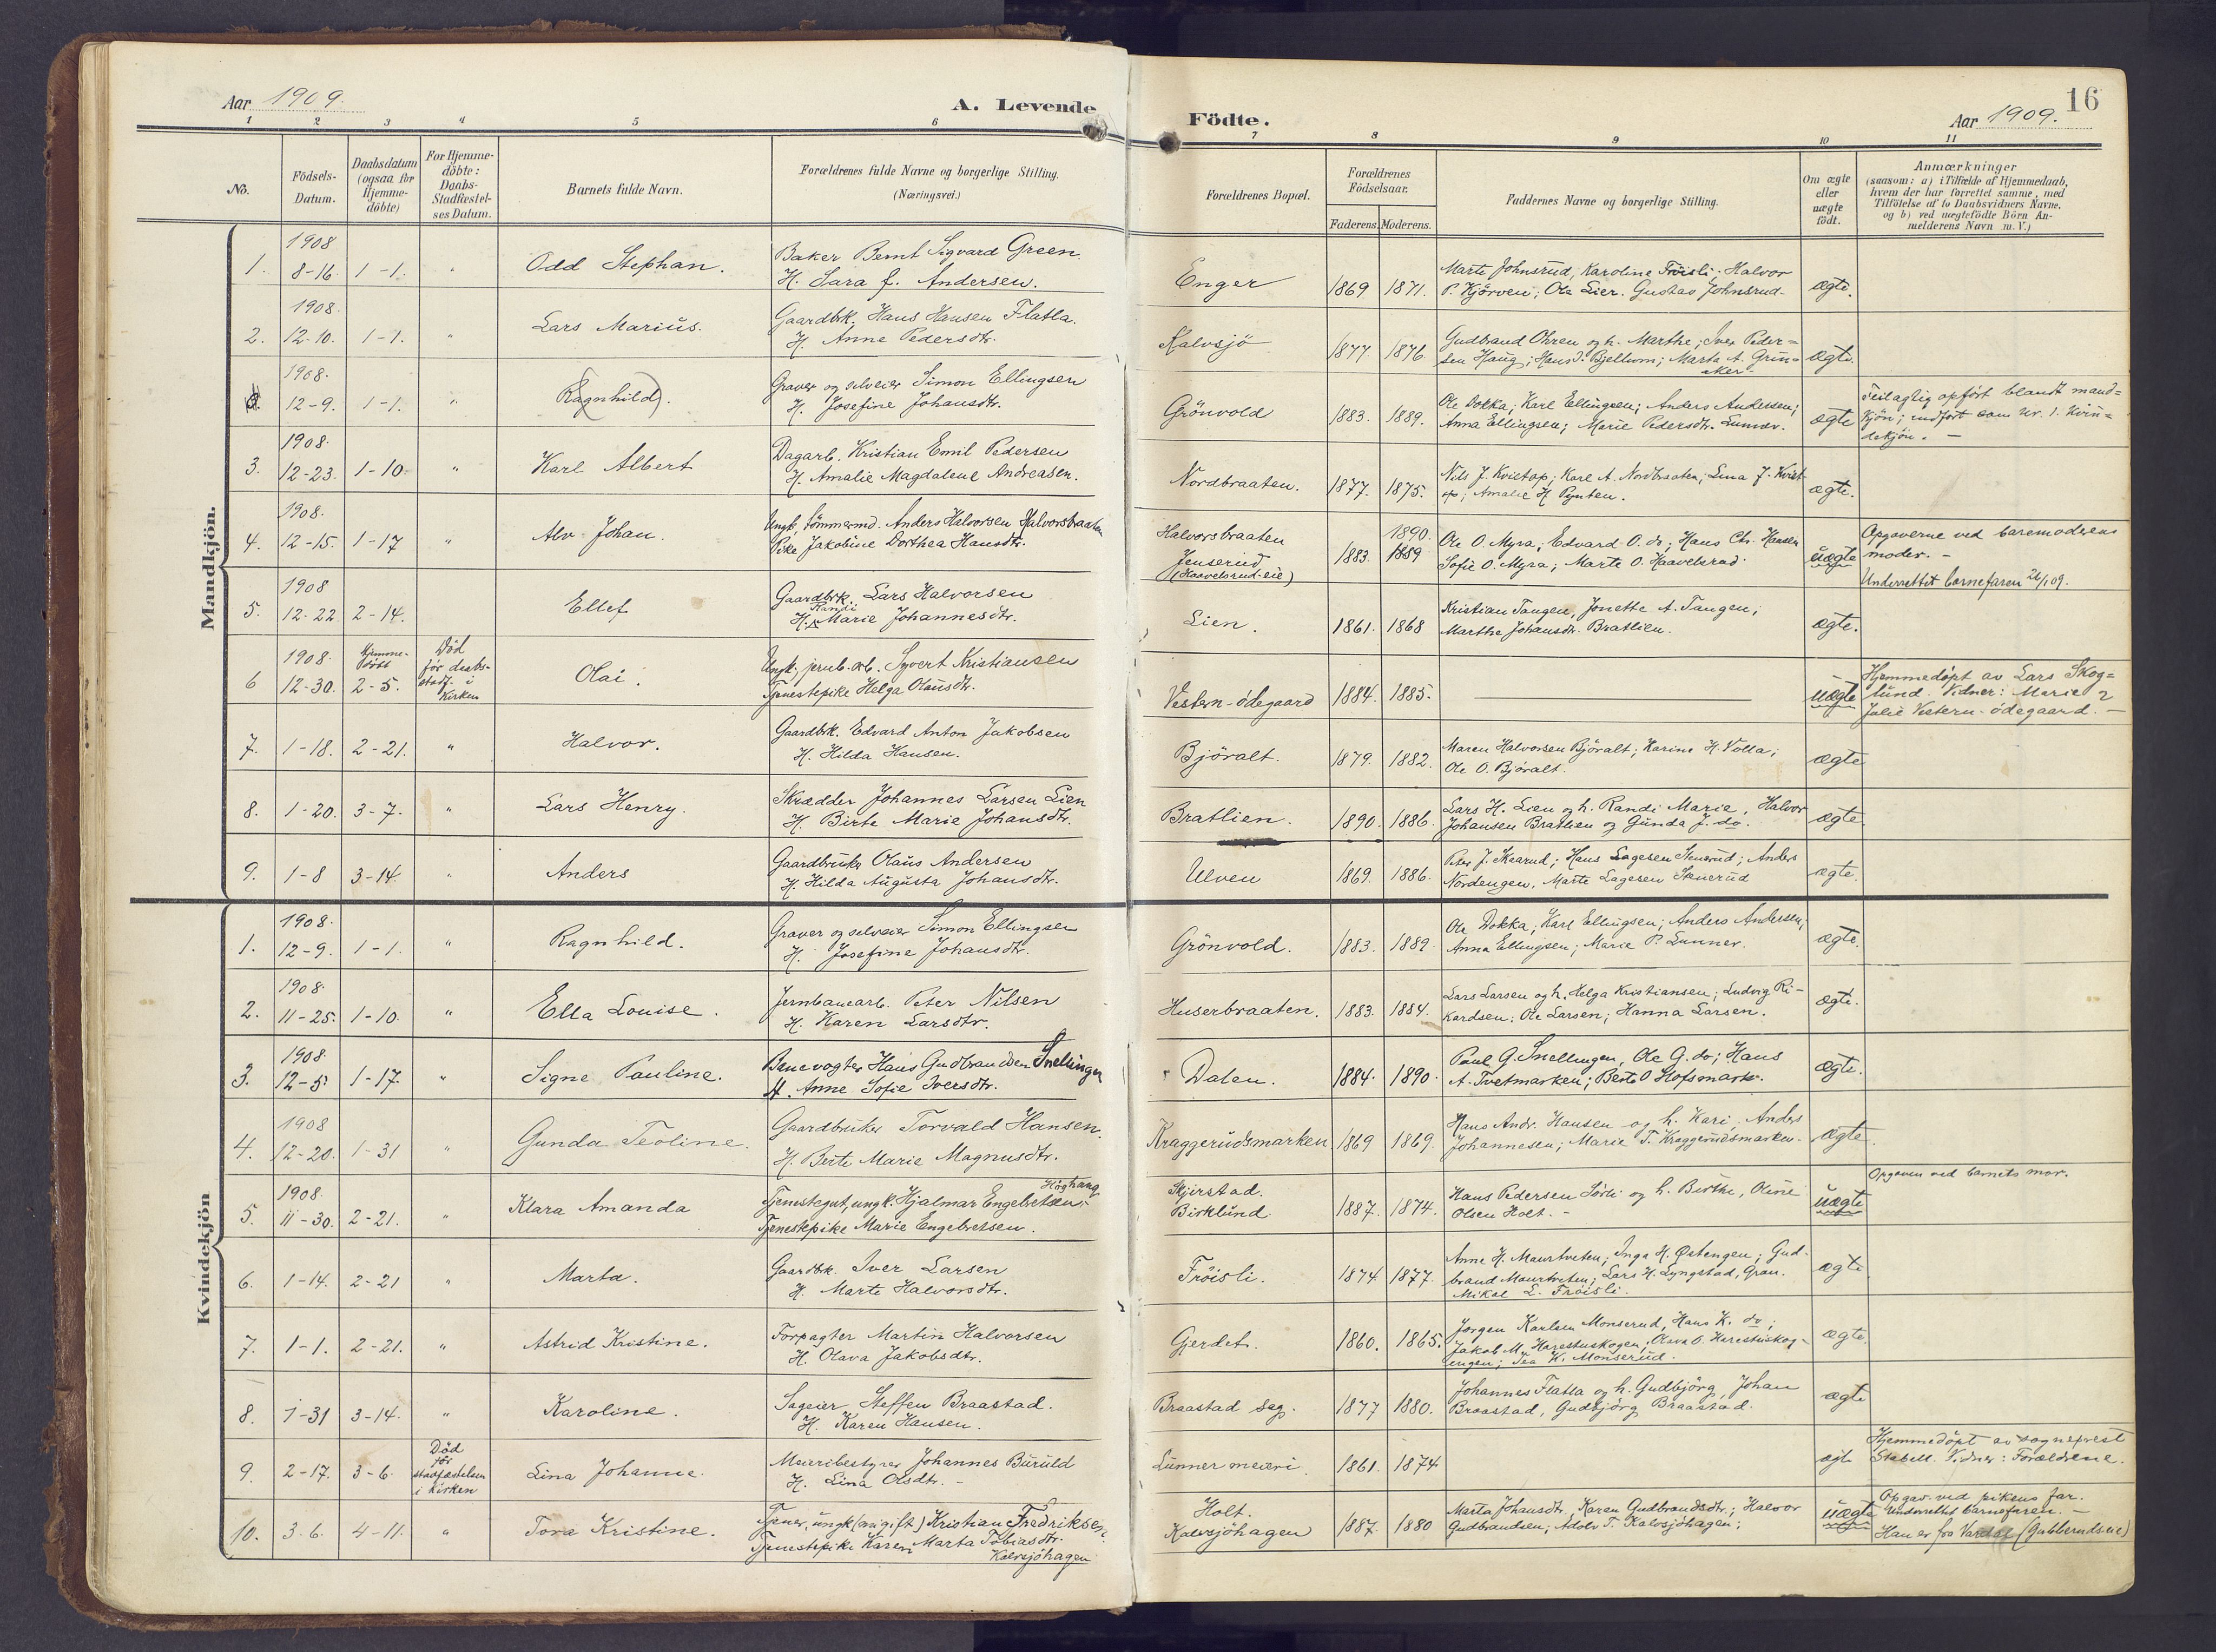 Aar 1909.
A. Levende
Födte.
Aar 1909.
16
1 2 3 4 5 6 7 8 9 10 11
No.
Födsels-Datum.
Daabsdatum (ogsaa for Hjemme-döbte)
For Hjemme-döbte: Daabs-Stadfæstel-ses Datum.
Barnets fulde Navn.
Forældrenes fulde Navne og borgerlige Stilling. (Næringsvei.)
Forældrenes Bopæl.
Forældrenes Födselsaar.
Faderens. Moderens.
Faddernes Navne og borgerlige Stilling.
Om ægte eller uægte födt.
Anmærkninger
(saasom: a) i Tilfælde af Hjemmedaab,
hvem der har forrettet samme, med
Tilföielse af to Daabsvidners Navne,
og b) ved uægtefödte Börn An-
melderens Navn m. V.)
Mandkjön.
1908
1. 8-16. 1-1. " Odd Stephan.
Baker Bernt Sigvard Green.
H. Sara J. Andersen.
Enger 1869 1871.
Marte Johnsrud, Karoline Fröisli; Halvor
P. Kjörven; Ole Lier. Gustav Johnsrud-
ægte.
1908.
2. 12-10. 1-1. " Lars Marius.
Gaardbrk. Hans Hansen Flatla.
H. Anne Pedersdtr.
Kalvsjö 1877 1876
Gudbrand Ohren og h. Marthe; Iver Peder=
sen Haug; Hans J. Bjellum; Marta A. Grin=
aker-
ægte.
1908.
12-9. 1-1. " (Ragnhild).
Graver og selveier Simon Ellingsen
H. Josefine Johansdtr.
Grönvold 1883. 1889.
Ole Dokka; Karl Ellingsen; Anders Andersen;
Anna Ellingsen; Marie Pedersdtr. Lunner.
ægte
Feilagtig opfört blandt mand=
kjön; indfört som nr. 1. kvin=
dekjön. -
1908
3. 12-23. 1-10. " Karl Albert
Dagarb. Kristian Emil Pedersen
H. Amalie Magdalene Andreasen.
Nordbraaten. 1877. 1875.
Nils J. Kvistop; Karl A. Nordbraaten; Lina J. Kvist-
op; Amalie H. Pynten.
ægte.
1908.
4. 12-15. 1-17 " Alv Johan.
Ungk. Tömmermd. Anders Halvorsen Halvorsbraaten
Pike Jakobine Dorthea Hansdtr.
Halvorsbraaten
Jenserud
(Haavelsrud-eie)
1883. 1890. 1889
Ole O. Myra; Edvard O. do; Hans Chr. Hansen
Sofie O. Myra; Marte O. Haavelsrud.
uægte
Opgaverne ved barnemoderens
moder. -
Underrettet barnefaren 26/1 09.
1908
5. 12-22 2-14. Ellef
Gaardbrk. Lars Halvorsen
H. Randi Marie Johannesdtr.
Lien. 1861. 1868
Kristian Tangen, Jonette A. Tangen;
Marthe Johansdtr. Bratlien.
ægte.
1908.
6 12-30. Hjemme-döbt 2-5. Död för daabs-stadf. i Kirken Olai.
Ungk. jernb.arb. Syvert Kristiansen
Tjenestepike Helga Olausdtr.
Vestern-ödegaard 1884. 1885.
uægte
Hjemmedöpt av Lars Skog=
lund. Vidner: Marie &
Julie Vestern-ödegaard. -
7. 1-18. 2-21. " Halvor.
Gaardbrk. Edvard Anton Jakobsen
H. Hilda Hansen.
Björalt. 1879. 1882.
Maren Halvorsen Björalt; Karine H. Volla;
Ole O. Björalt.
ægte
8. 1-20. 3-7. " Lars Henry.
Skrædder Johannes Larsen Lien
H. Birte Marie Johansdtr.
Bratlien. 1890. 1886.
Lars H. Lien og h. Randi Marie, Halvor
Johansen Bratlien og Gunda J. do.
ægte
9. 1-8 3-14. " Anders
Gaardbruker Olaus Andersen
H. Hilda Augusta Johansdtr.
Ulven 1869. 1886.
Peter J. Skaarud; Hans Lagesen Stenerud; Anders
Nordengen, Marte Lagesen Stenerud
ægte.
Kvindekjön
1908.
1. 12-9. 1-1. " Ragnhild.
Graver og selveier Simon Ellingsen
H. Josefine Johansdtr.
Grönvold. 1883. 1889.
Ole Dokka; Karl Ellingsen; Anders Andersen;
Anna Ellingsen; Marie P. Lunner.
ægte.
1908.
2. 11-25. 1-10. " Ella Louise.
Jernbanearb. Peter Nilsen
H. Karen Larsdtr.
Huserbraaten. 1883. 1884.
Lars Larsen og h. Helga Kristiansen; Ludvig Ri-
kardsen; Ole Larsen; Hanna Larsen.
ægte.
1908.
3. 12-5. 1-17. " Signe Pauline.
Banevogter Hans Gudbrandsen Snellingen
H. Anne Sofie Iversdtr.
Dalen. 1884. 1890.
Paul G. Snellingen, Ole G. do; Hans
A. Tveitmarken; Berte O Hofsmark.
ægte.
1908
4. 12-20. 1-31 " Gunda Teoline.
Gaardbruker Torvald Hansen.
H. Berte Marie Magnusdtr.
Kraggerudsmarken 1869 1869.
Hans Andr. Hansen og h. Kari; Anders
Johannesen; Marie T. Kraggerudsmarken.
ægte.
1908.
5. 11-30. 2-21. " Klara Amanda
Tjenestegut, ungk. Hjalmar Engebretsen Höghaug
Tjenestepike Marie Engebretsen.
Skjerstad.
Birklund. 1887. 1874.
Hans Pedersen Sörli og h. Birthe, Oline
Olsen Holt. -
uægte
Opgaven ved barnets mor.
6. 1-14. 2-21 " Marta.
Gaardbk. Iver Larsen
H. Marte Halvorsdtr.
Fröisli. 1874 1877.
Anne H. Maurtveten; Inga H. Østengen; Gud-
brand Maurtveten; Lars H. Lyngstad, Gran.
Mikal L. Fröisli.
ægte
7. 1-1. 2-21. " Astrid Kristine.
Forpagter Martin Halvorsen
H. Olava Jakobsdtr.
Gjerdet. 1860. 1865.
Jørgen Karlsen Monserud, Hans K. do;
Jakob M. Harestuskogen; Olava O. Harestuskog-
engen; Tea K. Monserud.
ægte.
8. 1-31 3-14. " Karoline.
Sageier Steffen Braastad.
H. Karen Hansen.
Braastad sag. 1877 1880.
Johannes Flatla og h. Gudbjörg, Johan
Braastad, Gudbjörg Braastad.
ægte
9. 2-17. 3-6. Död för stadfæstelsen i Kirken Lina Johanne.
Meieribestyrer Johannes Buruld
H. Lina Olsdtr. -
Lunner meieri 1861. 1874
ægte
Hjemmedöpt av sogneprest
Stabell. Vidner: Forældrene.
10. 3-6. 4-11. " Tora Kristine.
Tjener, ungk (nu gift) Kristian Fredriksen.
Tjenestepike Karen Marta Tobiasdtr.
Kalvsjöhagen
Holt.
Kalvsjöhagen 1887. 1880
Marta Johansdtr, Karen Gudbrandsdtr; Halvor
Gudbrandsen; Adolv T. Kalvsjöhagen;
uægte
Opgav. ved pikens far.
Underrettet barnefaren. -
Han er fra Vardal (Gubberudseie)